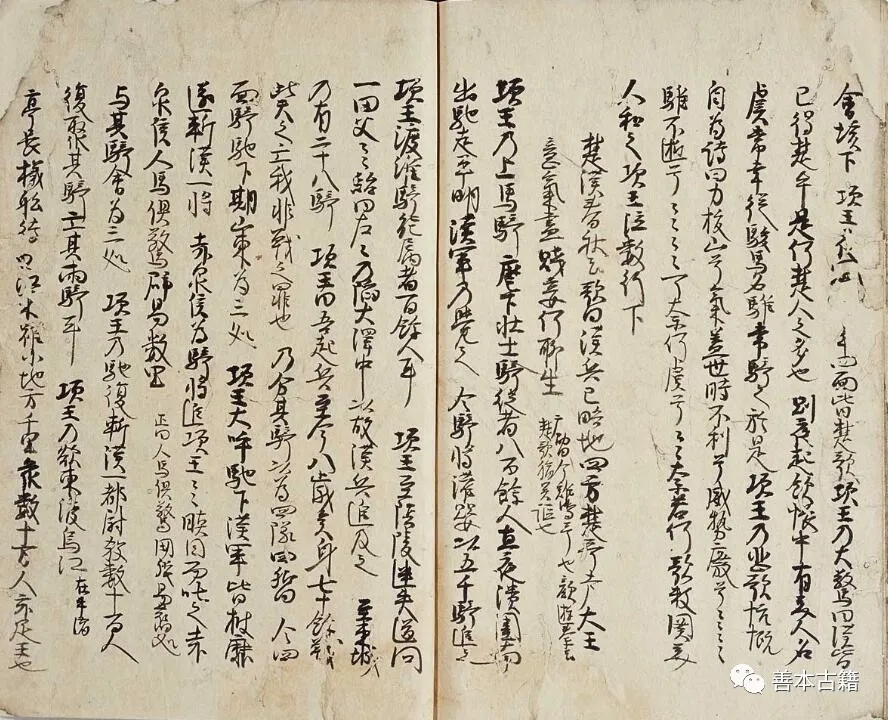 會垓下 項王夜聞 四面皆楚歌項王乃大驚曰漢皆
已得楚乎是何楚人之多也 則夜起飲帳中有美人名
虞常幸従駿馬名騅常騎之於是項王乃悲歌忼慨
自為詩曰力拔山兮氣蓋世時不利兮威勢廢兮々々々々
騅不逝兮々々々可奈何虞兮々々奈若何歌数闋美
人和之項王泣数行下
楚漢春秋云歌曰漢兵已略地四方楚歌声大王
意氣盡賤妾何聊生
應劭曰今鶏鳴哥也顔遊秦云
楚歌猶吴謳也
項王乃上馬騎麾下壮士騎従者八百餘人直夜潰圍南
出馳走平明漢軍乃覺之 令騎将潅嬰以五千騎追之
項王渡淮騎能属者百餘人耳 項王至陰陵迷失道問
一田父々紿曰左々乃陥大澤中以故漢兵追及之 至東城
乃有二十八騎 項王曰吾起兵至今八歳矣身七十餘戦
此天之亡我非戦之罪也 乃分其騎以為四隊四嚮 令四
面騎馳下期山東為三処 項王大呼馳下漢軍皆披靡
遂斬漢一将 赤泉侯為騎将追項王々々瞋目而叱之赤
泉侯人馬倶驚辟易数里 正曰人馬倶驚開張易旧処
与其騎會為三処 項王乃馳復斬漢一都尉殺数十百人
復聚其騎亡其両騎耳 項王乃欲東渡烏江 在牛渚
亭長檥船待 曰江東雖小地方千里衆数十万人亦足王也
善本古籍